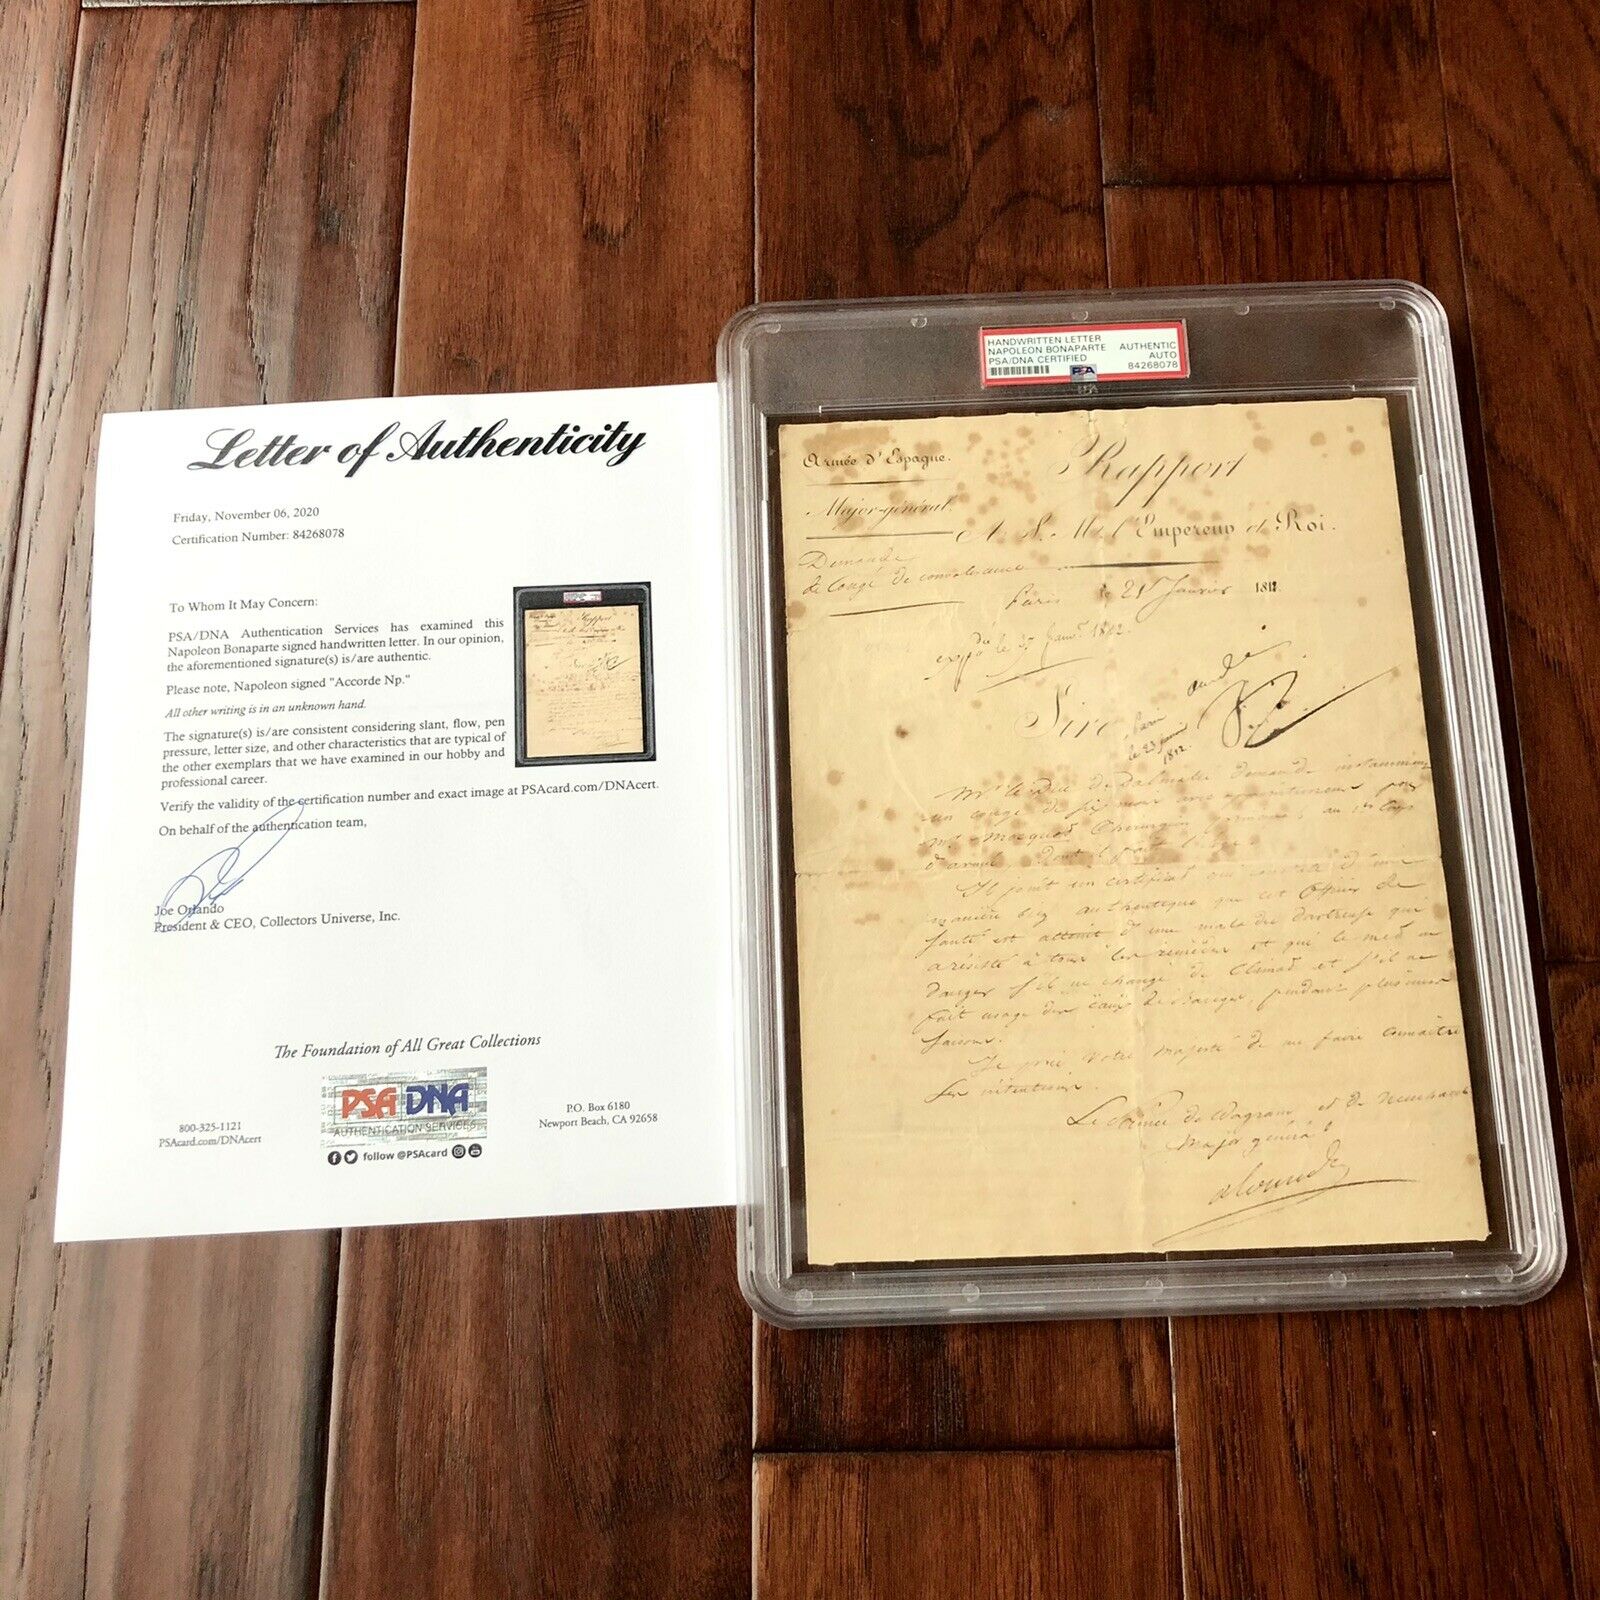 Letter of Authenticity
Friday, November 06, 2020
Certification Number: 84268078
To Whom It May Concern:
PSA/DNA Authentication Services has examined this
Napoleon Bonaparte signed handwritten letter. In our opinion,
the aforementioned signature(s) is/are authentic.
Please note, Napoleon signed "Accorde Np."
All other writing is in an unknown hand.
The signature(s) is/are consistent considering slant, flow, pen
pressure, letter size, and other characteristics that are typical of
the other exemplars that we have examined in our hobby and
professional career.
Verify the validity of the certification number and exact image at PSAcard.com/DNAcert.
On behalf of the authentication team,
Joe Orlando
President & CEO, Collectors Universe, Inc.
The Foundation of All Great Collections
800-325-1121
PSAcard.com/DNAcert
PSA DNA
AUTHENTICATION SERVICES
follow @PSAcard
P.O. Box 6180
Newport Beach, CA 92658
HANDWRITTEN LETTER
NAPOLEON BONAPARTE AUTHENTIC
PSA/DNA CERTIFIED AUTO
84268078
PSA
Armée d'Espagne.
Major-général.
Demande
de Congé de convalescence
Rapport
A S. M. l'Empereur et Roi.
Paris le 21 Janvier 1812
Sire
Paris
le 23
1812.
Mr le Duc de Dalmatie demande instamment
un congé de six mois avec appointemens pour
Mr Chirurgien au 1er Corps
d'armée, dont il fait l'éloge.
Il joint un certificat qui constate d'une
manière authentique que cet Officier de
santé est atteint d'une maladie dartreuse qui
a résisté à tous les remèdes et qui le met en
danger s'il ne change de Climat et s'il ne
fait usage des Eaux de Barèges, pendant plusieurs
saisons.
Je prie Votre Majesté de me faire connaître
Ses intentions.
Le Prince de Wagram et de Neuchatel
Major général